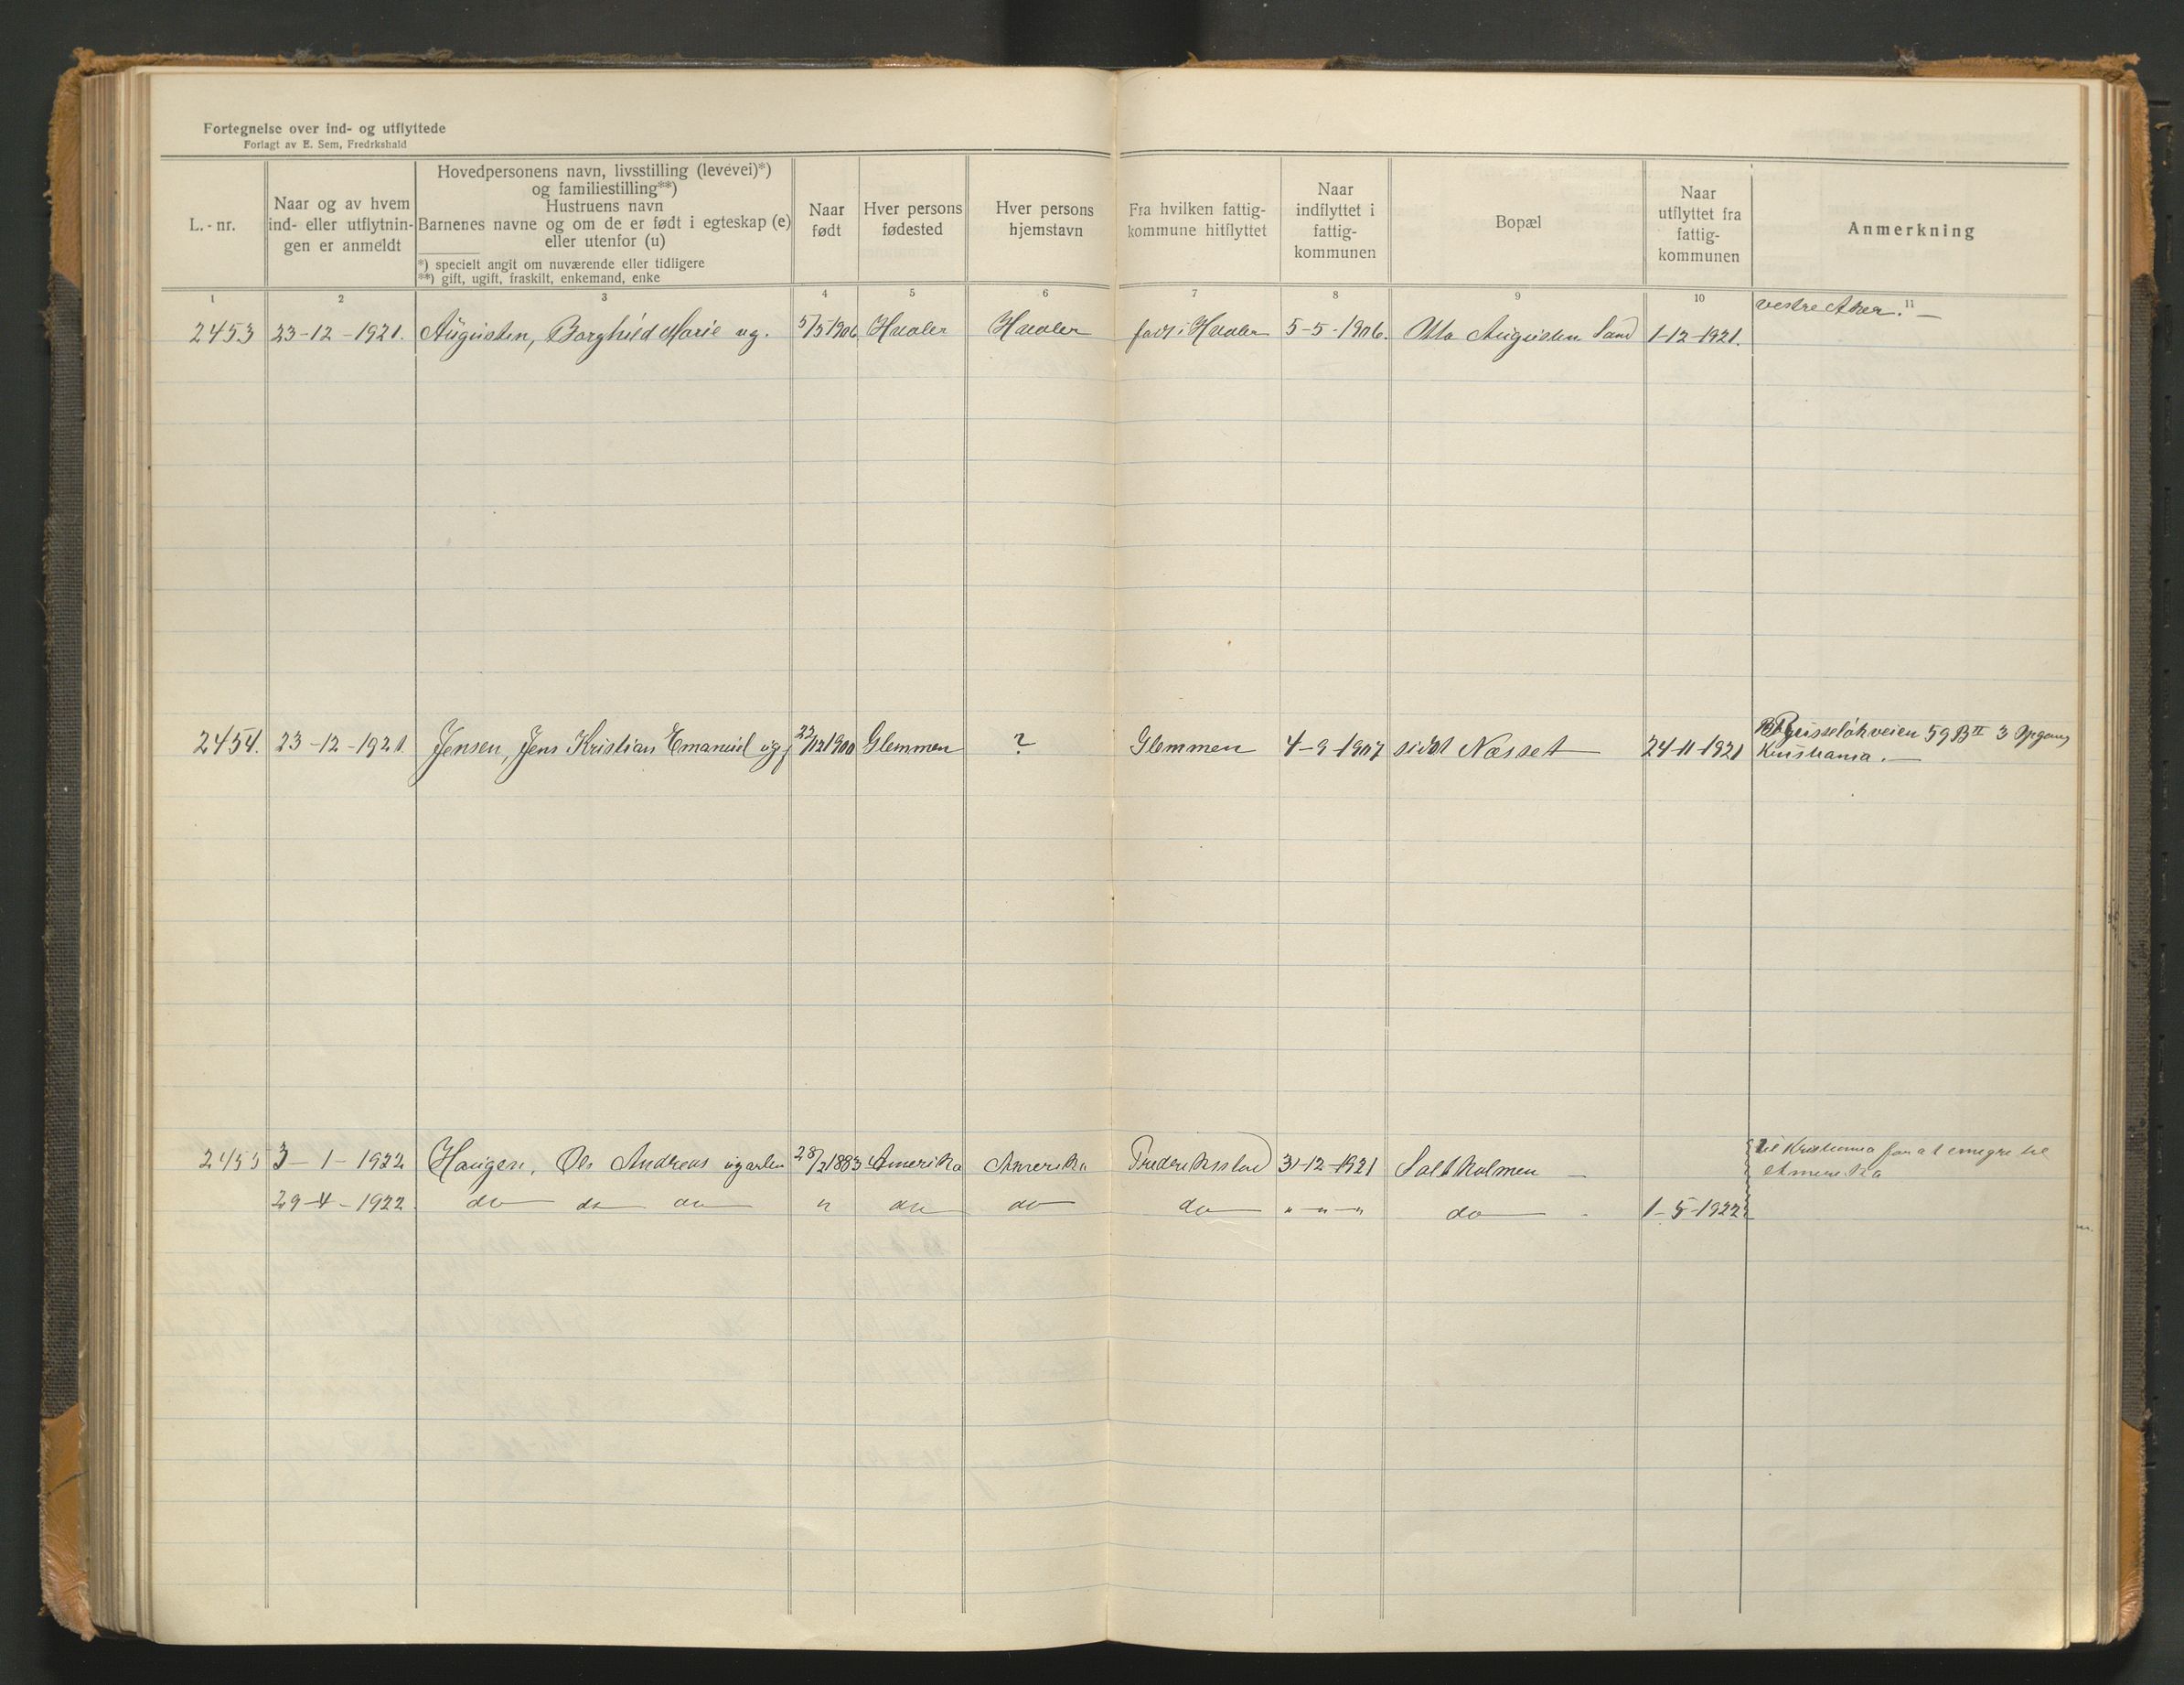 Fortegnelse over ind- og utflyttede
Forlagt av E. Sem, Fredrkshald
L.-nr.
Naar og av hvem
ind- eller utflytnin-
gen er anmeldt
Hovedpersonens navn, livsstilling (levevei)*)
og familiestilling**)
Hustruens navn
Barnenes navne og om de er født i egteskap (e)
eller utenfor (u)
*) specielt angit om nuværende eller tidligere
**) gift, ugift, fraskilt, enkemand, enke
Naar
født
Hver persons
fødested
Hver persons
hjemstavn
Fra hvilken fattig-
kommune hitflyttet
Naar
indflyttet i
fattig-
kommunen
Bopæl
Naar
utflyttet fra
fattig-
kommunen
Anmerkning
1 2 3 4 5 6 7 8 9 10 11
vestre Aker. —
2453 23-12-1921. Augusten, Borghild Marie ug. 5/5 1906 Hvaler Hvaler født i Hvaler 5-5-1906. Augusten Sand 1-12-1921.
Ruseløkveien 59 B II 3 Opgang
2454. 23-12-1921. Jensen, Jens Kristian Emanuel 22/12 1900 Glemmen ? Glemmen 4-9-1907 sidst Næsset 24-11-1921 Kristiania. —
til Kristiania for at emigre til
2455 3-1-1922 Haugen, Ole Andreas 28/2 1883 Amerika Amerika Frederiksstad 31-12-1921 Saltholmen — Amerika
29-4-1922. do do do " do do do " - " - " do 1-5-1922